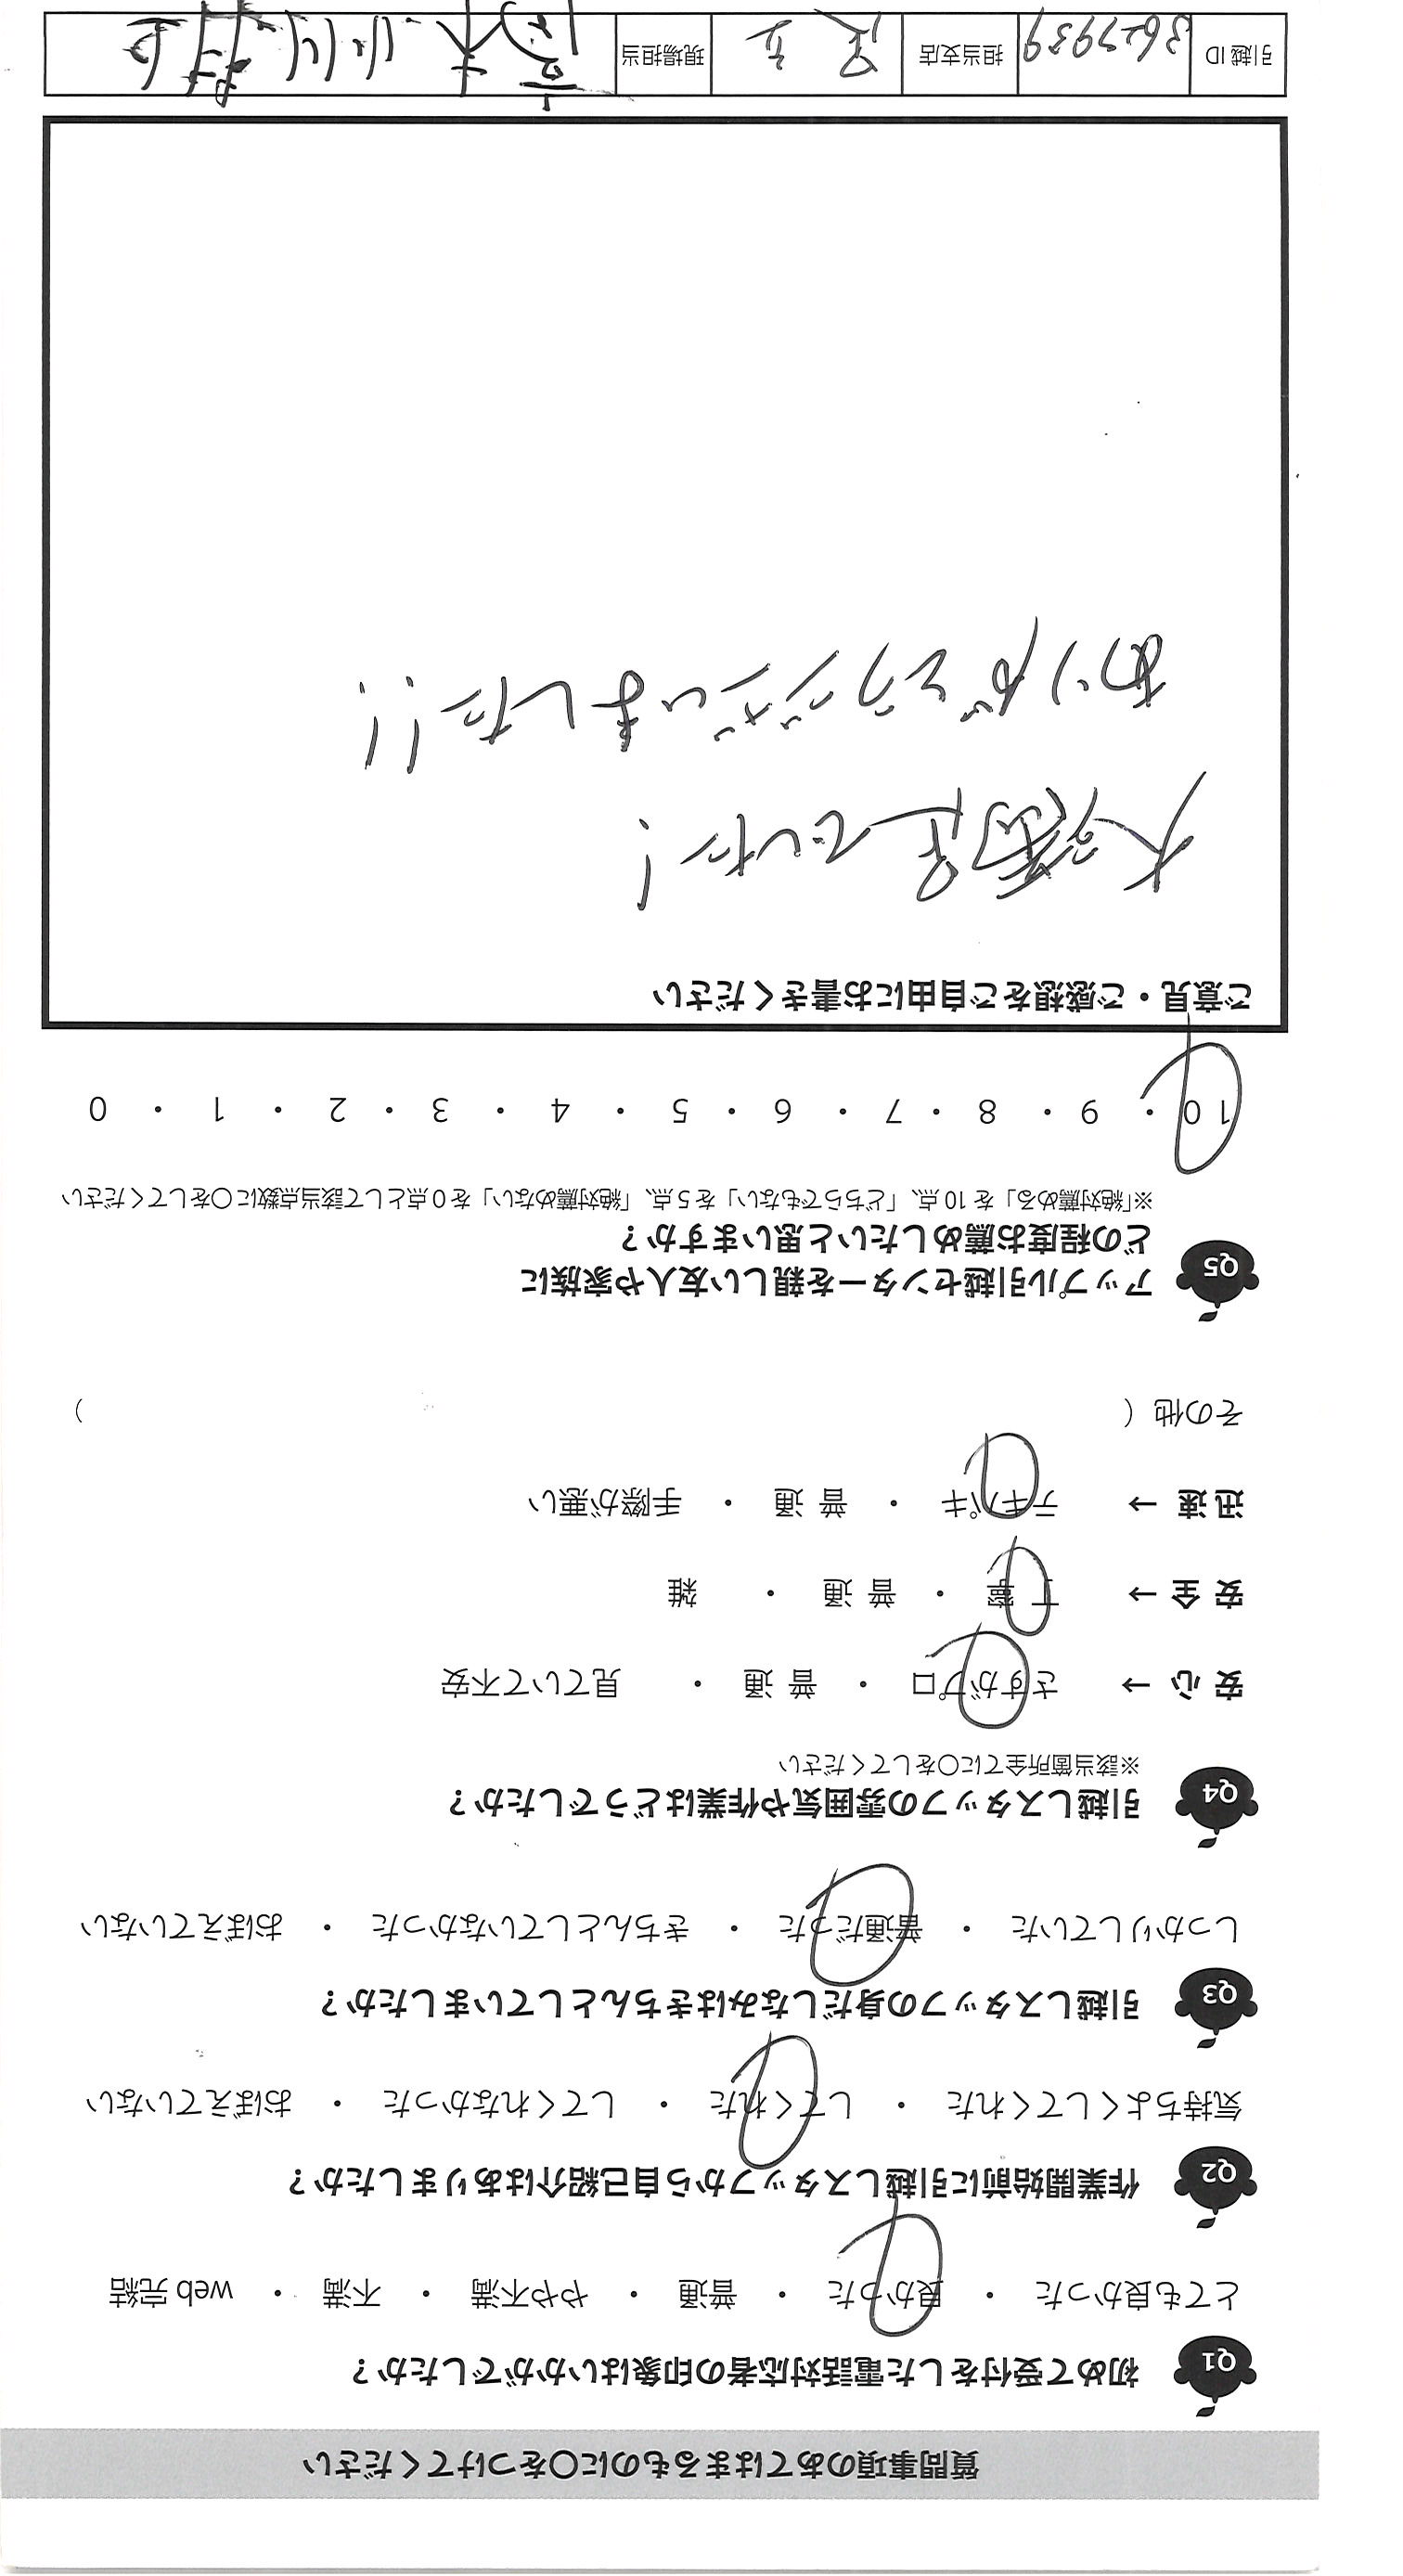 質問事項のあてはまるものに○をつけてください
Q1 初めて受付をした電話対応者の印象はいかがでしたか？
とても良かった ・ 良かった ・ 普通 ・ やや不満 ・ 不満 ・ web 完結
Q2 作業開始前に引越しスタッフから自己紹介はありましたか？
気持ちよくしてくれた ・ してくれた ・ してくれなかった ・ おぼえていない
Q3 引越しスタッフの身だしなみはきちんとしていましたか？
しっかりしていた ・ 普通だった ・ きちんとしていなかった ・ おぼえていない
Q4 引越しスタッフの雰囲気や作業はどうでしたか？
※該当箇所全てに○をしてください
安心 → さすがプロ ・ 普通 ・ 見ていて不安
安全 → 丁寧 ・ 普通 ・ 雑
迅速 → テキパキ ・ 普通 ・ 手際が悪い
その他（ ）
Q5 アップル引越センターを親しい友人や家族に
どの程度お薦めしたいと思いますか？
※「絶対薦める」を 10 点、「どちらでもない」を 5 点、「絶対薦めない」を 0 点として該当点数に○をしてください
10 ・ 9 ・ 8 ・ 7 ・ 6 ・ 5 ・ 4 ・ 3 ・ 2 ・ 1 ・ 0
ご意見・ご感想をご自由にお書きください
大満足でした！
ありがとうございました！！
引越 ID 3627939 担当支店 現場担当